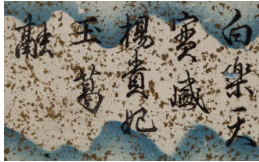 白楽天
實盛
楊貴妃
玉葛
融